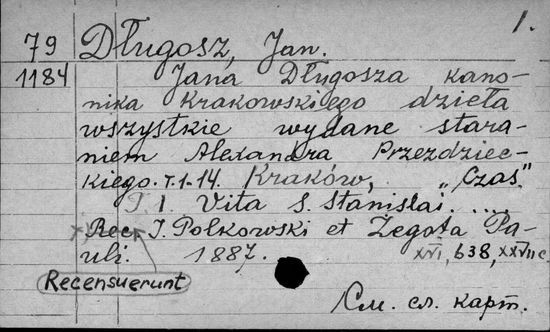 1.
79 Długosz, Jan.
1184 Jana Długosza kano-
nika Krakowskiego dzieła
wszystkie wydane stara-
niem Alexandra Przezdziec-
kiego. T. 1-14. Kraków, "Czas."
T. 1. Vita S. Stanislai ....
Rec. I. Polkowski et Żegota Pa-
uli. 1887. XVI, 638, XXVII c.
Recensuerunt
См. сл. карт.